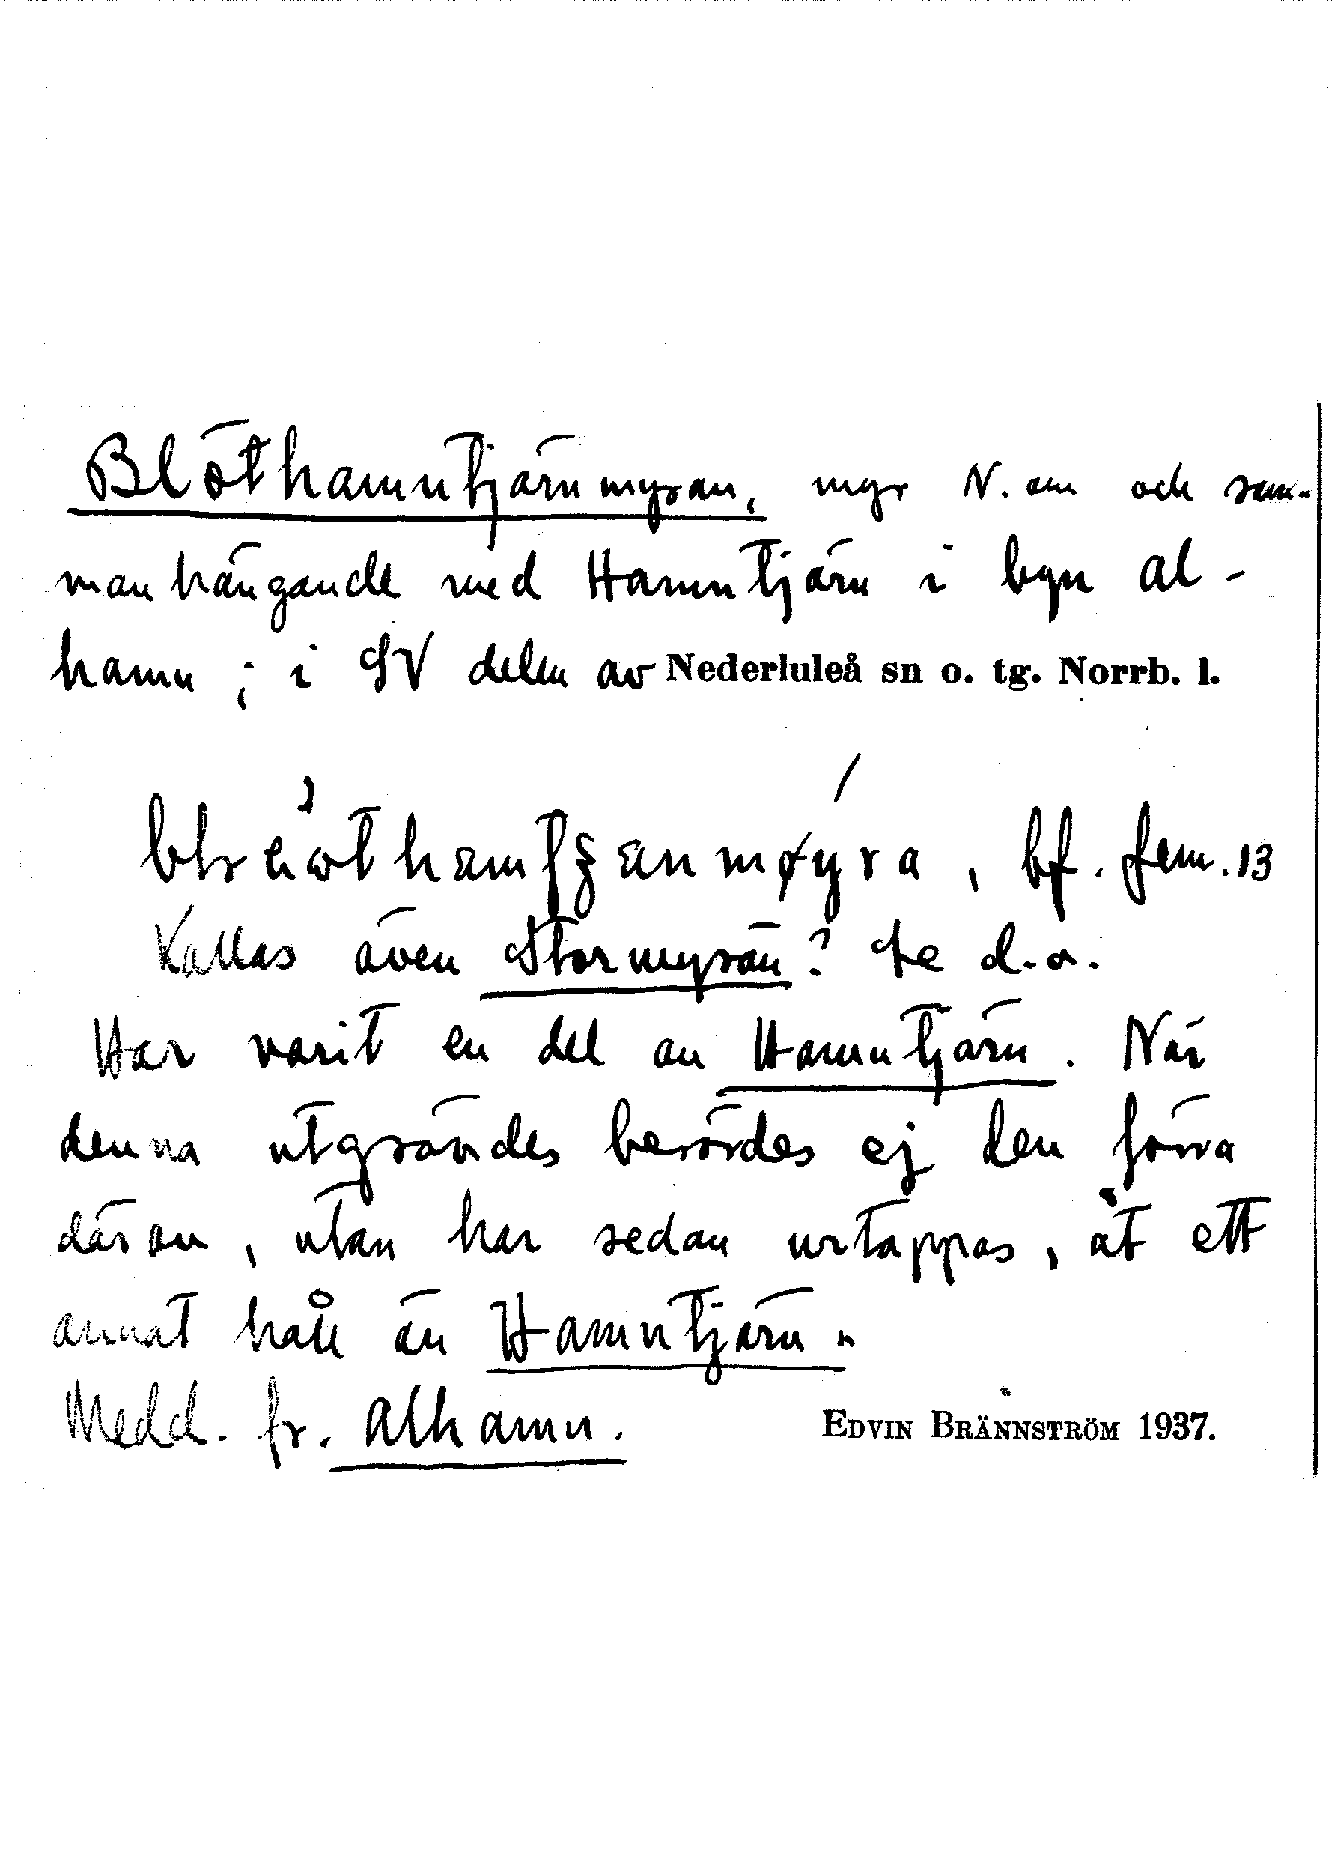 Blöthamntjärnmyran, myr N. om och sam-
manhängande med Hamntjärn i byn Al-
hamn ; i SV delen av Nederluleå sn o. tg. Norrb. l.
bf. fem. 13
Kallas även Stormyran? Se d.o.
Har varit en del av Hamntjärn. När
denna utgrävdes berördes ej den förra
därav, utan har sedan urtappas, åt ett
annat håll än Hamntjärn.
Medd. fr. Alhamn. EDVIN BRÄNNSTRÖM 1937.